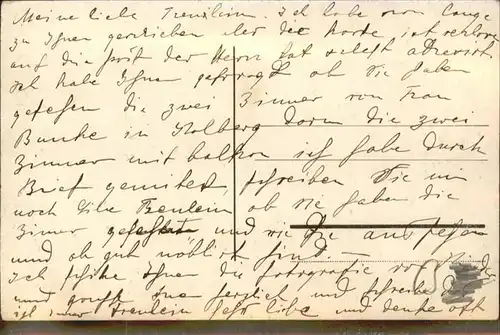 Meine liebe Freulein. Ich habe von lange
zu Ihnen der Karte ist verloren
auf die post der Herr hat selbst
ich habe Ihnen gefragt ob Sie haben
gesehen die zwei Zimmer von Frau
Bunke in Kolberg dorm die zwei
Zimmer mit balkon ich habe durch
Brief gemitet, schreiben Sie mir
noch Freulein ob sie haben die
Zimer und wie Sie aussehen
und ob gut möblirt sind. —
ich schike Ihnen die fotografie von
und und schreibe
ich immer Freulein liebe und denke oft